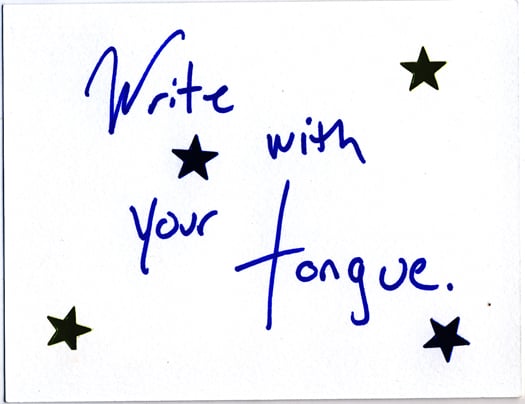 Write
with
your
tongue.